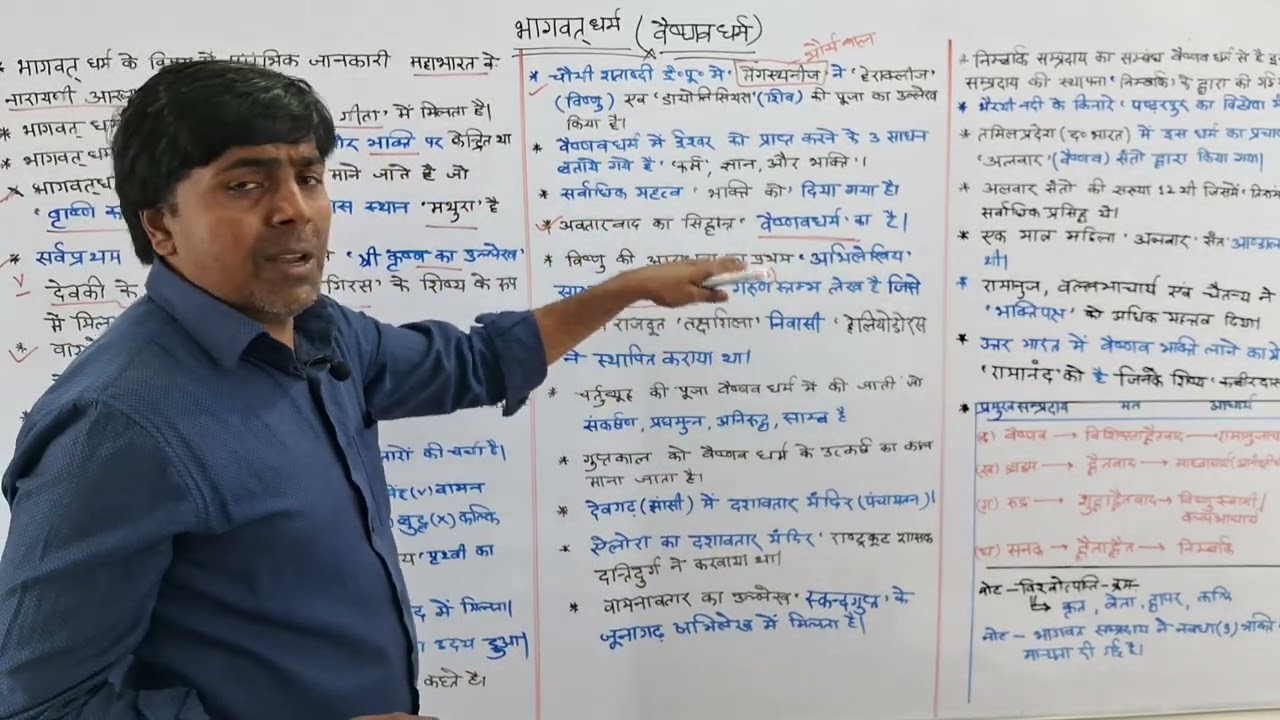 भागवत् धर्म (वैष्णव धर्म)
* भागवत् धर्म के जानकारी महाभारत के
नारायणी
* भागवत् गीता' में मिलता है।
* भागवत् और भक्ति पर केन्द्रित था
* भागवत् माने जाते है जो
'वृष्णि स्थान 'मथुरा' है
* सर्वप्रथम 'श्री कृष्ण का उल्लेख'
देवकी के के शिष्य के रूप
में
की चर्चा है।
(v) वामन
बुद्ध (x) कल्कि
'पृथ्वी का
में मिलता।
उदय हुआ।
कहते है।
मौर्य काल
* चौथी शताब्दी ई॰पू॰ में 'मेगस्थनीज' ने 'हेराक्लीज'
(विष्णु) एवं 'डायोनिसियस' (शिव) की पूजा का उल्लेख
किया है।
* वैष्णव धर्म में ईश्वर को प्राप्त करने के 3 साधन
बताये गये है 'कर्म, ज्ञान, और भक्ति'।
* सर्वाधिक महत्व 'भक्ति को' दिया गया है।
* अवतारवाद का सिद्धान्त 'वैष्णव धर्म' का है।
* विष्णु की का प्रथम 'अभिलेखिय'
गरूण स्तम्भ लेख है जिसे
राजदूत 'तक्षशिला' निवासी 'हेलियोडोरस
ने स्थापित कराया था।
* चर्तुव्यूह की पूजा वैष्णव धर्म में की जाती जो
संकर्षण, प्रद्युम्न, अनिरुद्ध, साम्ब है
* गुप्तकाल को वैष्णव धर्म के उत्कर्ष का काल
माना जाता है।
* देवगढ़ (झांसी) में दशावतार मंदिर (पंचायतन)।
* ऐलोरा का दशावतार मंदिर 'राष्ट्रकूट शासक
दन्तिदुर्ग ने करवाया था।
* वामनावतार का उल्लेख 'स्कन्दगुप्त' के
जूनागढ़ अभिलेख में मिलता है।
* निम्बार्क सम्प्रदाय का सम्बंध वैष्णव धर्म से है
सम्प्रदाय की स्थापना 'निम्बार्क' के द्वारा की गई
* नदी के किनारे 'पण्ढरपुर का
* तमिल प्रदेश (द॰ भारत) में इस धर्म का
'अलवार' (वैष्णव) संतो द्वारा किया गया।
* अलवार संतो की संख्या 12 थी जिसमें
सर्वाधिक प्रसिद्ध थे।
* एक मात्र महिला 'अलवार' संत
थी।
* रामानुज, वल्लभाचार्य एवं चैतन्य ने
'भक्तिपक्ष' को अधिक महत्व दिया।
* उत्तर भारत में वैष्णव भक्ति लाने का
'रामानंद' को है जिनके शिष्य
* प्रमुख सम्प्रदाय मत आचार्य
(क) वैष्णव → विशिष्टाद्वैतवाद →
(ख) ब्रह्म → द्वैतवाद →
(ग) रुद्र → शुद्धाद्वैतवाद → विष्णुस्वामी/
(घ) सनक → द्वैताद्वैत → निम्बार्क
नोट –
↳ कृत, त्रेता, द्वापर, कलि
नोट – भागवत सम्प्रदाय में नवधा (9) भक्ति
मान्यता दी गई है।